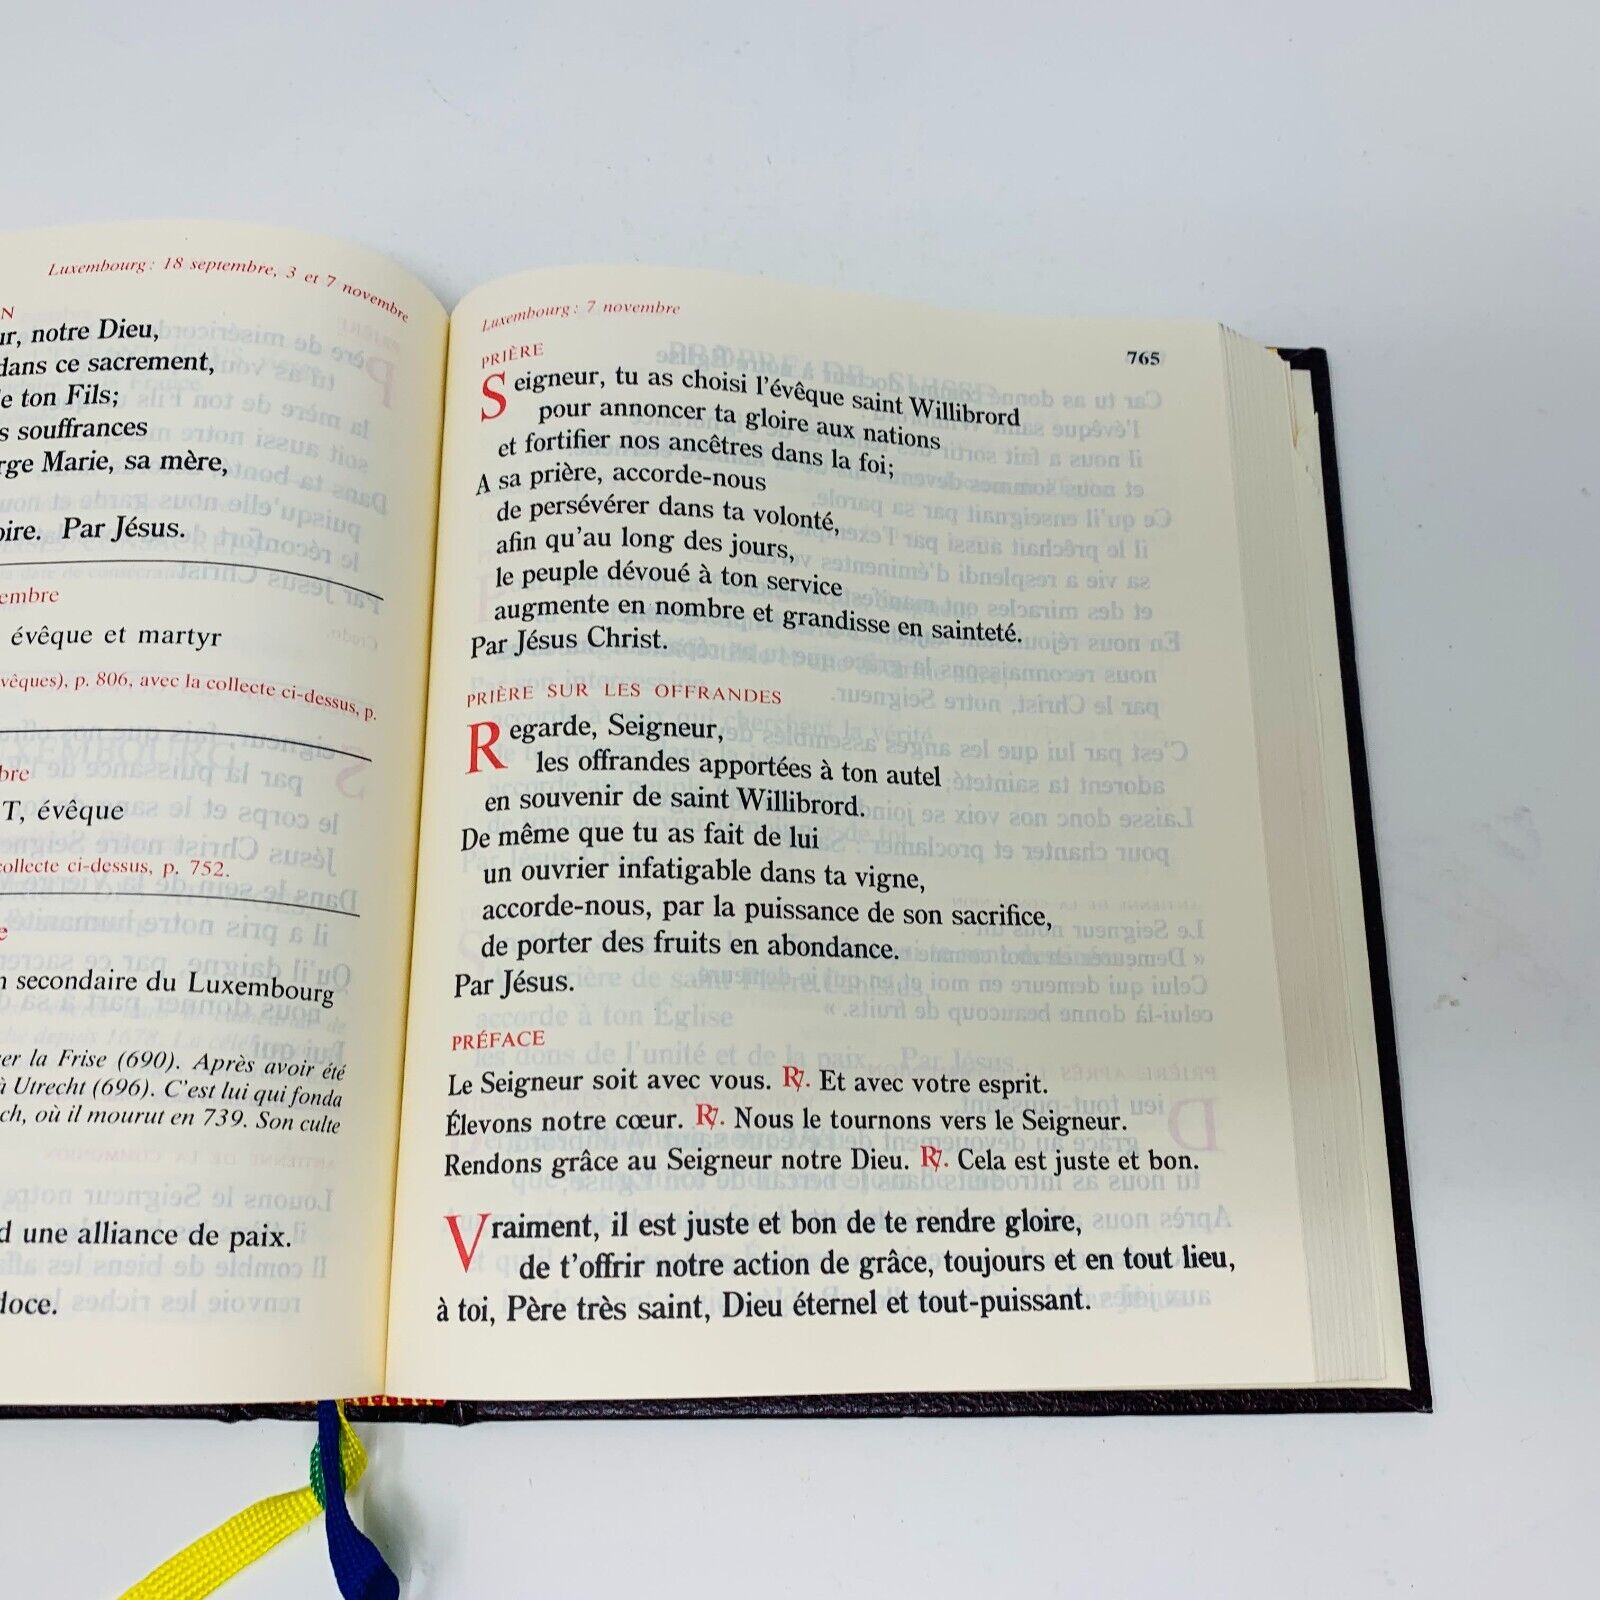 Luxembourg: 18 septembre, 3 et 7 novembre
N
ur, notre Dieu,
dans ce sacrement,
e ton Fils;
s souffrances
rge Marie, sa mère,
oire. Par Jésus.
embre
évêque et martyr
vêques), p. 806, avec la collecte ci-dessus, p.
bre
T, évêque
collecte ci-dessus, p. 752.
e
n secondaire du Luxembourg
er la Frise (690). Après avoir été
à Utrecht (696). C'est lui qui fonda
ch, où il mourut en 739. Son culte
d une alliance de paix.
doce.
Luxembourg: 7 novembre
765
PRIÈRE
Seigneur, tu as choisi l'évêque saint Willibrord
pour annoncer ta gloire aux nations
et fortifier nos ancêtres dans la foi;
A sa prière, accorde-nous
de persévérer dans ta volonté,
afin qu'au long des jours,
le peuple dévoué à ton service
augmente en nombre et grandisse en sainteté.
Par Jésus Christ.
PRIÈRE SUR LES OFFRANDES
Regarde, Seigneur,
les offrandes apportées à ton autel
en souvenir de saint Willibrord.
De même que tu as fait de lui
un ouvrier infatigable dans ta vigne,
accorde-nous, par la puissance de son sacrifice,
de porter des fruits en abondance.
Par Jésus.
PRÉFACE
Le Seigneur soit avec vous. ℟. Et avec votre esprit.
Élevons notre cœur. ℟. Nous le tournons vers le Seigneur.
Rendons grâce au Seigneur notre Dieu. ℟. Cela est juste et bon.
Vraiment, il est juste et bon de te rendre gloire,
de t'offrir notre action de grâce, toujours et en tout lieu,
à toi, Père très saint, Dieu éternel et tout-puissant.